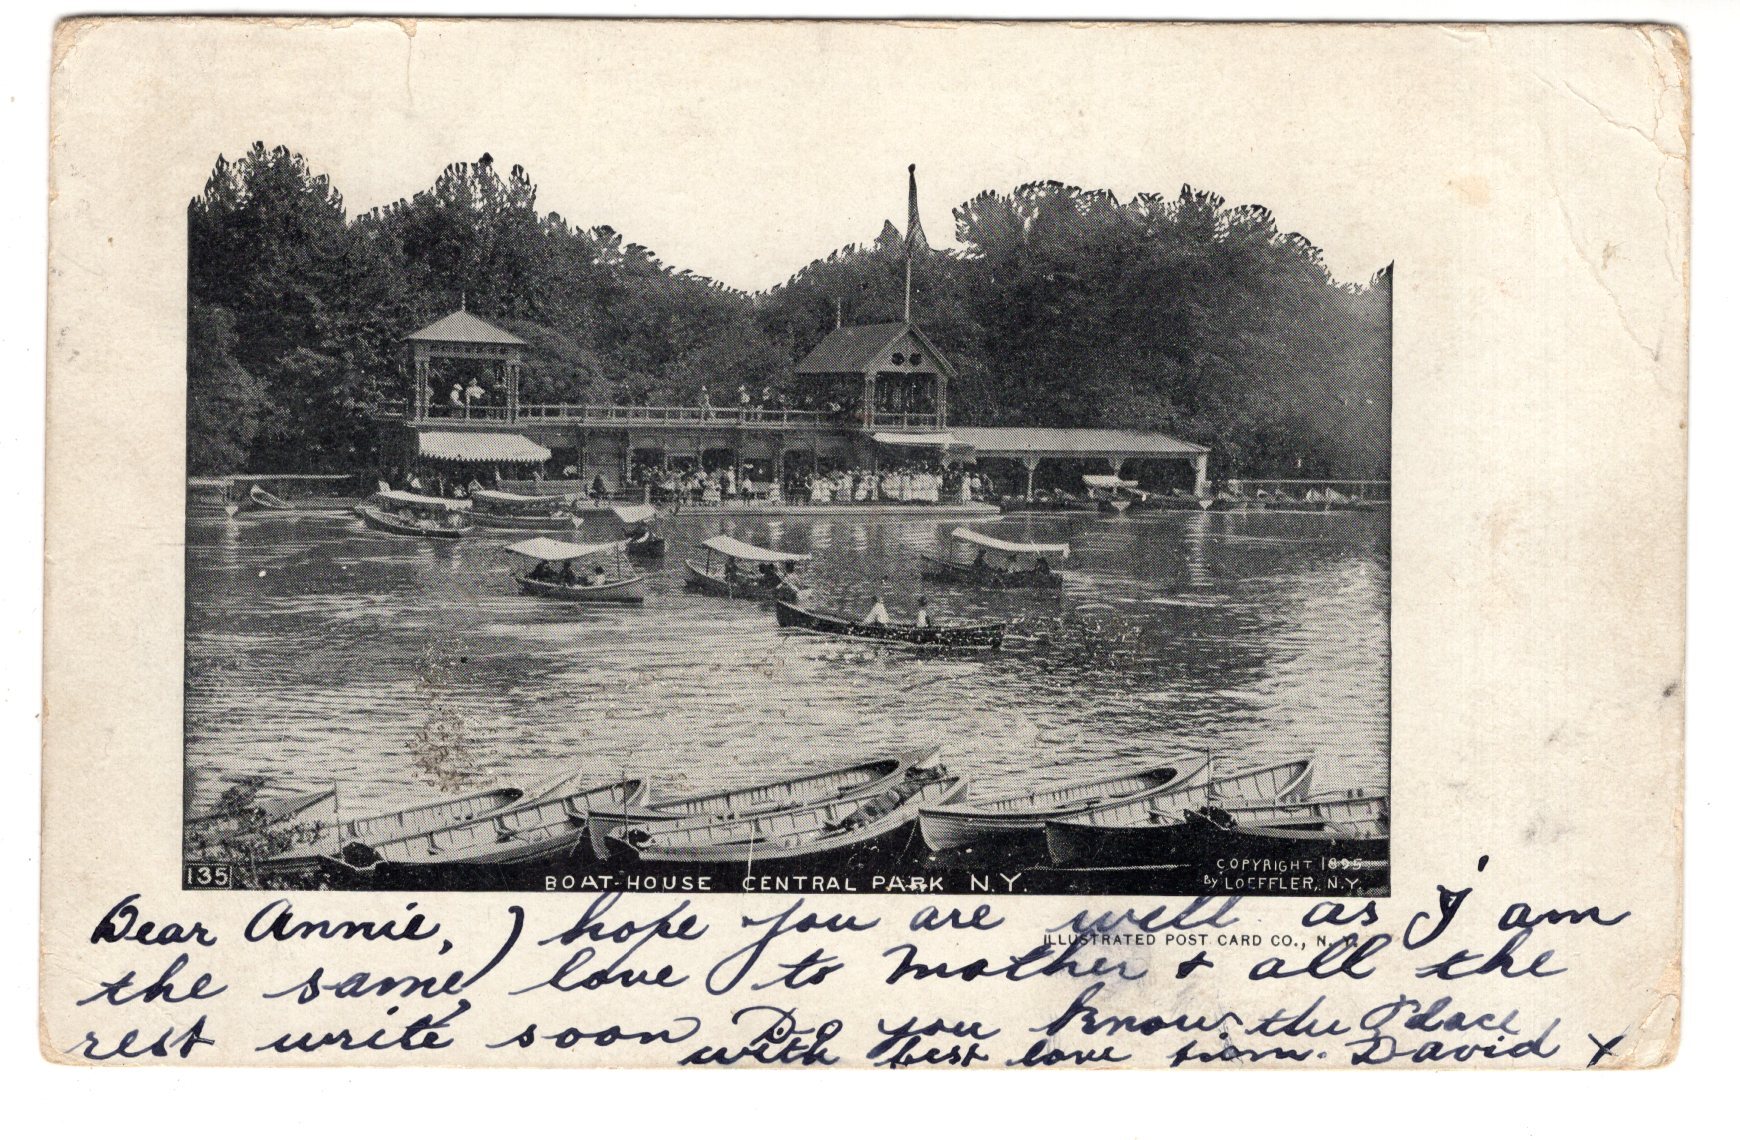 135
BOAT-HOUSE CENTRAL PARK N.Y.
COPYRIGHT 1895
By LOEFFLER, N.Y.
ILLUSTRATED POST CARD CO., N.Y.
Dear Annie, I hope you are well as I am
the same, love to Mother & all the
rest write soon Do you know the Place
with best love from David X